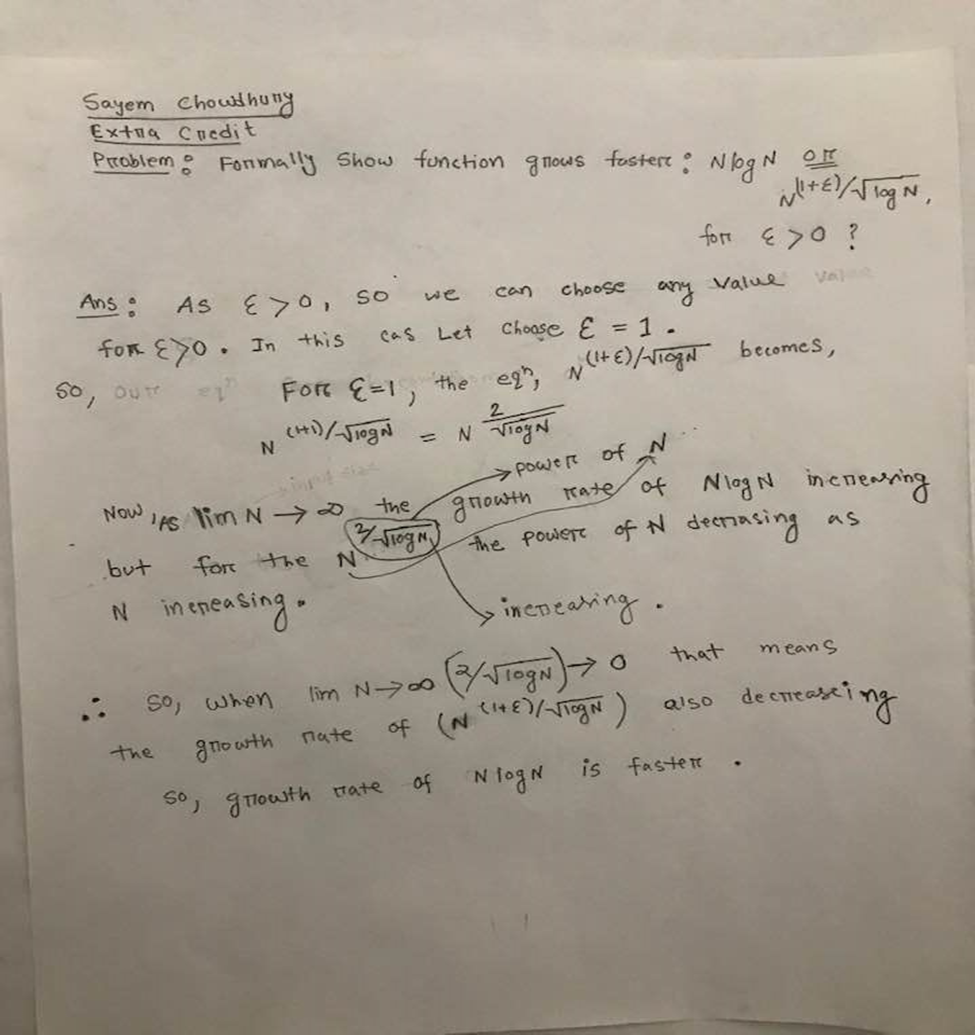 Sayem Chowdhury
Extra Credit
Problem: Formally Show function grows faster: NlogN or
N^(1+ε)/√logN,
for ε>0 ?
Ans: As ε>0, so we can choose any value value
for ε>0. In this cas Let Choose ε = 1.
So, our eqⁿ For ε=1, the eqⁿ, N^(1+ε)/√logN becomes,
N^(1+1)/√logN = N^2/√logN
→power of N
Now, As lim N→∞ the growth rate of NlogN increasing
but for the N^2/√logN, the power of N decrasing as
N increasing. →increasing.
∴ So, when lim N→∞ (2/√logN)→0 that means
the growth rate of (N^(1+ε)/√logN) also decreaseing
so, growth rate of NlogN is faster.